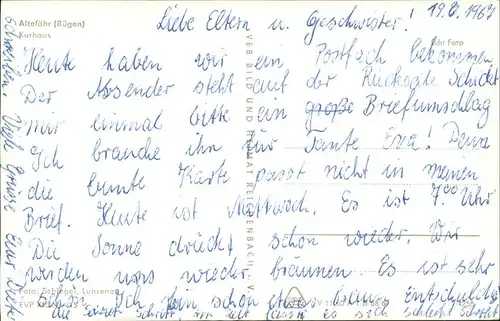 Altefähr (Rügen)
Kurhaus
Liebe Eltern u. Geschwister! 19.8.1967
Heute haben wir ein Postfach bekommen
Der Absender steht auf der Rückseite Schickt
mir einmal bitte ein große Briefumschlag
Ich brauche ihn für Tante Eva! Denn
die bunte Karte passt nicht in meinen
Brief. Heute ist Mittwoch. Es ist 7.00 Uhr
Die Sonne drückt schon wieder. Wir
werden uns wieder bräunen. Es ist sehr
schön. Ich bin schon etwas braun. Entschuldigt
die Schrift, mir
es sich schlecht
schreiben. Viele Grüsse Eure
Echt Foto
VEB BILD UND HEIMAT REICHENBACH I. V.
Foto: Schlegel, Lunzenau
EVP